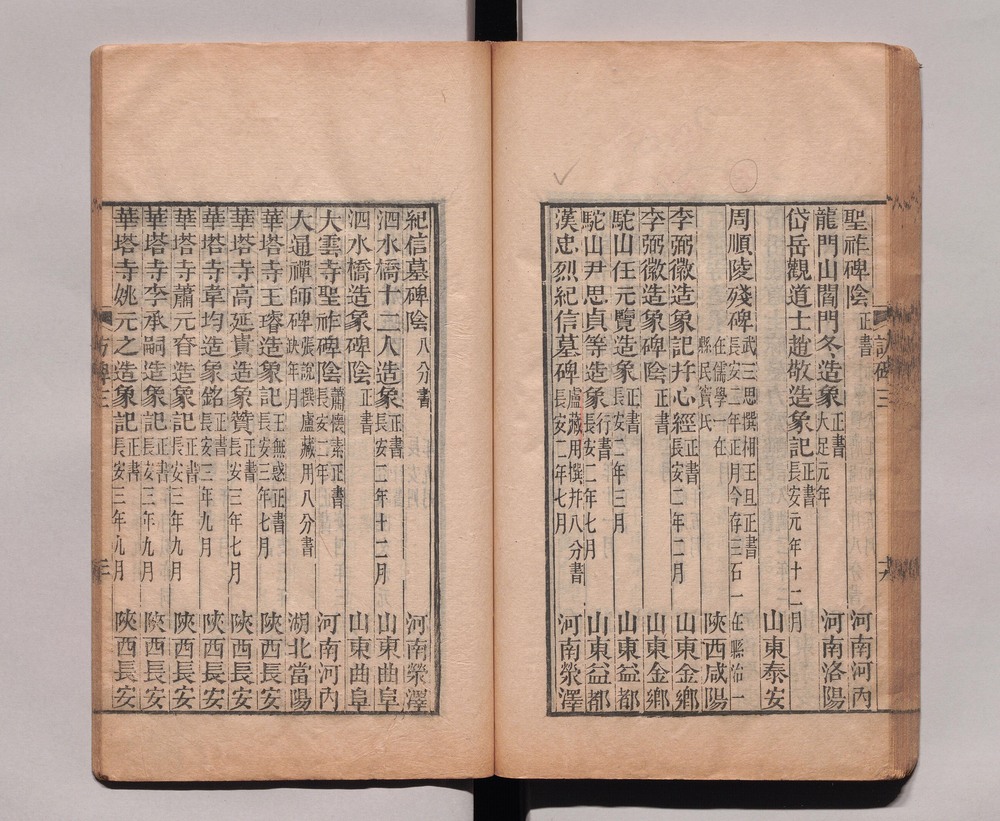 聖祚碑陰 正書 河南河內
龍門山閻門冬造象 正書 大足元年 河南洛陽
岱岳觀道士趙敬造象記 正書 長安元年十二月 山東泰安
周順陵殘碑 武三思撰相王旦正書 長安二年正月今存三石一在縣治一 在儒學一在 縣民竇氏 陝西咸陽
李弼徽造象記幷心經 正書 長安二年二月 山東金鄉
李弼徽造象碑陰 正書 山東金鄉
駝山任元覽造象 正書 長安二年三月 山東益都
駝山尹思貞等造象 行書 長安二年七月 山東益都
漢忠烈紀信墓碑 盧藏用撰幷八分書 長安二年七月 河南滎澤
紀信墓碑陰 八分書 河南滎澤
泗水橋十二人造象 正書 長安二年十二月 山東曲阜
泗水橋造象碑陰 正書 山東曲阜
大雲寺聖祚碑陰 蕭懷素正書 長安二年 河南河內
大通禪師碑 張說撰盧藏用八分書 缺年月 湖北當陽
華塔寺王璿造象記 王無惑正書 長安三年七月 陝西長安
華塔寺高延貴造象贊 正書 長安三年七月 陝西長安
華塔寺韋均造象銘 正書 長安三年九月 陝西長安
華塔寺蕭元眘造象記 正書 長安三年九月 陝西長安
華塔寺李承嗣造象記 正書 長安三年九月 陝西長安
華塔寺姚元之造象記 正書 長安三年九月 陝西長安